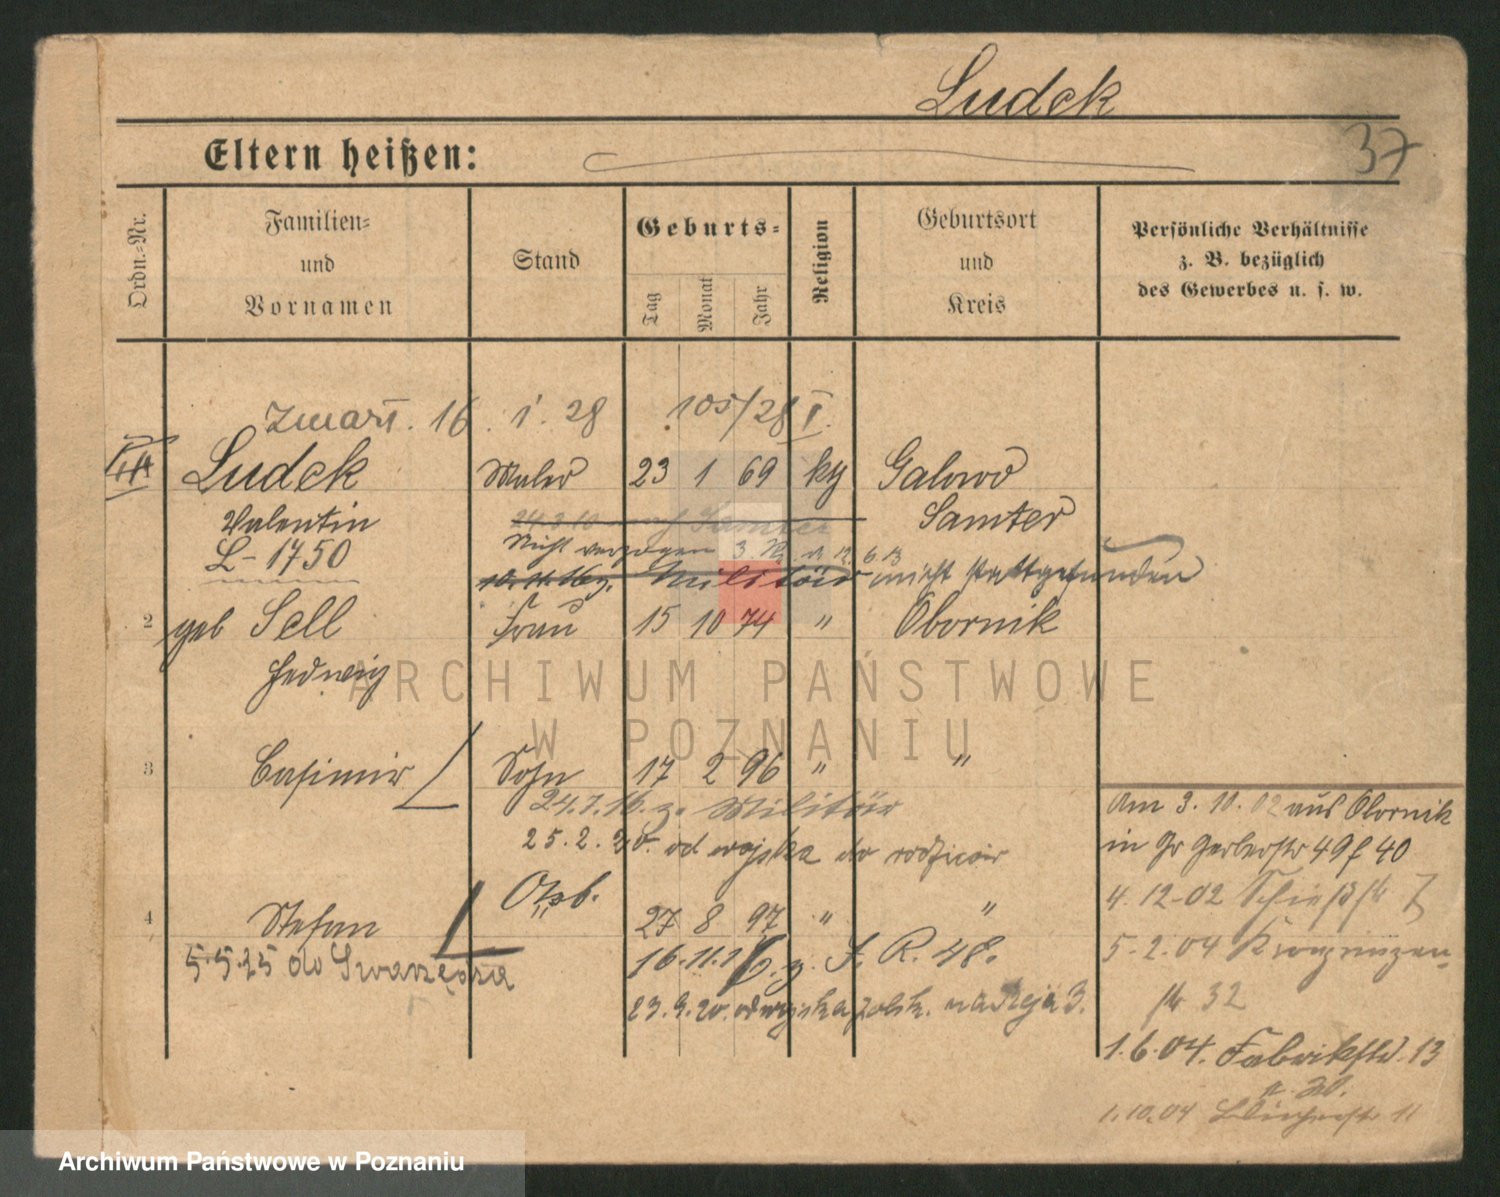 Ludek
37
Eltern heißen:
Ordn.=Nr.
Familien=
und
Vornamen
Stand
Geburts=
Tag
Monat
Jahr
Religion
Geburtsort
und
Kreis
Persönliche Verhältnisse
z. B. bezüglich
des Gewerbes u. s. w.
Zmarł. 16. 1. 28 105/28 I.
Ludek Maler 23 1 69 kth Galowo
Valentin Samter
24.3.10 auf Samter
L-1750
Nicht verzogen 3. R. d. 12.6.13
10.11.16 z. Militär nicht stattgefunden
2 geb Sell Frau 15 10 74 " Obornik
Hedwig
ARCHIWUM PAŃSTWOWE
W POZNANIU
3 Casimir Sohn 17 2 96 " "
24.7.16. z. Militär
25.2.20. od wojska do rodziców
4 Stefan 27 8 97 " "
5.5.25 do Swarzędza
16.11.16. z. F. R. 48.
23.9.20. od wojska polsk. 3.
Am 3.10.02 aus Obornik
in Gr Gerberstr 49 f 40
4.12-02 Schießstr 7
5.2.04 Kronprinzen-
str 32
1.6.04. Fabrikstr. 13
1.10.04 11
Archiwum Państwowe w Poznaniu